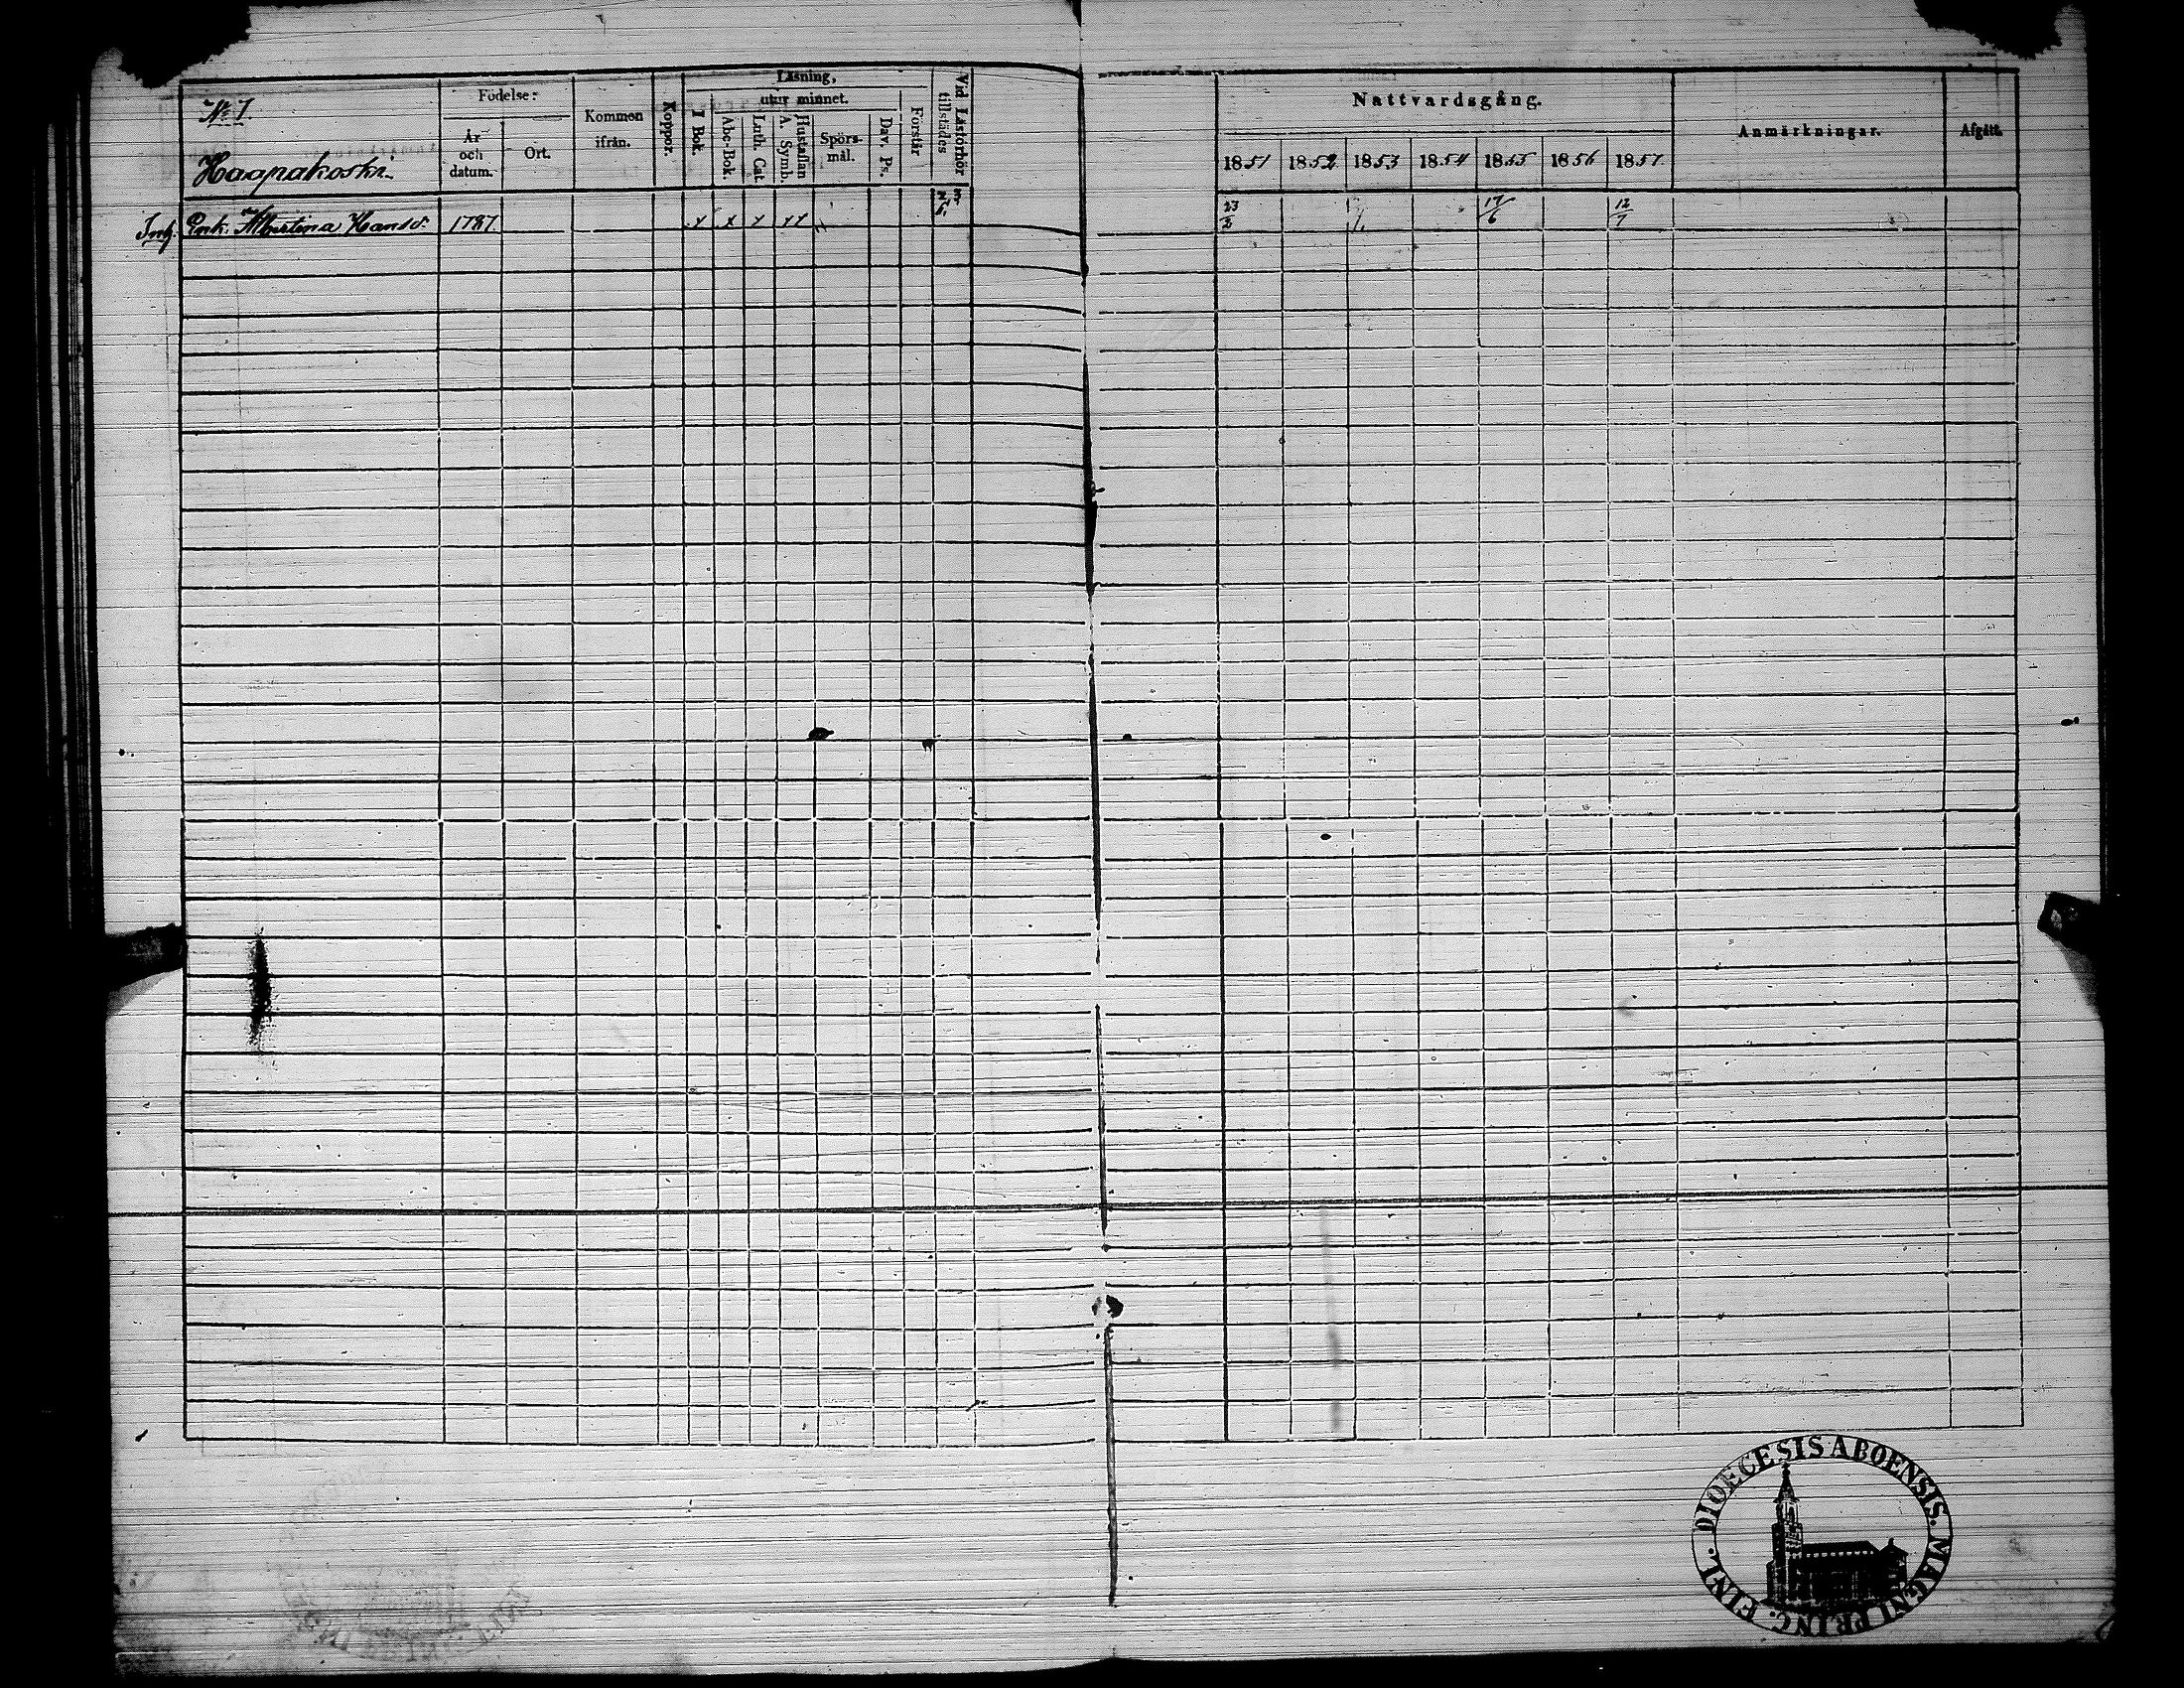 N:o 1.
Haapakoski.
Födelse:
År och datum.
Ort.
Kommen ifrån.
Koppor.
Läsning,
I Bok.
utur minnet.
Abc-Bok.
Luth. Cat.
A. Symb.
Hustaflan
Spörs-mål.
Dav. Ps.
Förstår
Vid Läsförhör tillstädes
Nattvardsgång.
1851 1852 1853 1854 1855 1856 1857
Anmärkningar.
Afgått.
Inh. Enk. Albertina Hansd: 1787 x x x xx 23/2 17/6 12/7
DIOECESIS ABOENSIS. MAGNI PRINC. FINL.